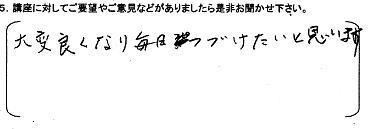 5. 講座に対してご要望やご意見などがありましたら是非お聞かせ下さい。
大変良くなり毎日つづけたいと思います